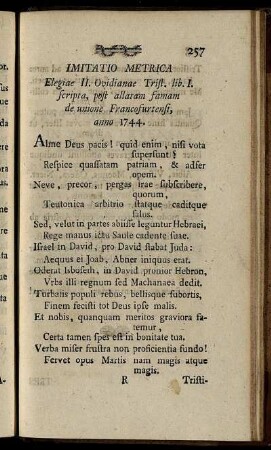 257
IMITATIO METRICA
Elegiae II. Ovidianae Trist. lib. I.
scripta, post allatam famam
de unione Francofurtensi,
anno 1744.
Alme Deus pacis! quid enim, nisi vota
supersunt?
Respice quassatam patriam, & adfer
opem.
Neve, precor, pergas irae subscribere,
quorum,
Teutonica arbitrio statque caditque
salus.
Sed, velut in partes abiisse leguntur Hebraei,
Rege manus ictu Saule cadente suae.
Israel in David, pro David stabat Juda:
Aequus ei Joab, Abner iniquus erat.
Oderat Isboseth, in David pronior Hebron,
Vrbs illi regnum sed Machanaea dedit.
Turbatis populi rebus, bellisque subortis,
Finem fecisti tot Deus ipse malis.
Et nobis, quanquam meritos graviora fa-
temur,
Certa tamen spes est in bonitate tua.
Verba miser frustra non proficientia fundo!
Fervet opus Martis nam magis atque
magis.
R Tristi-